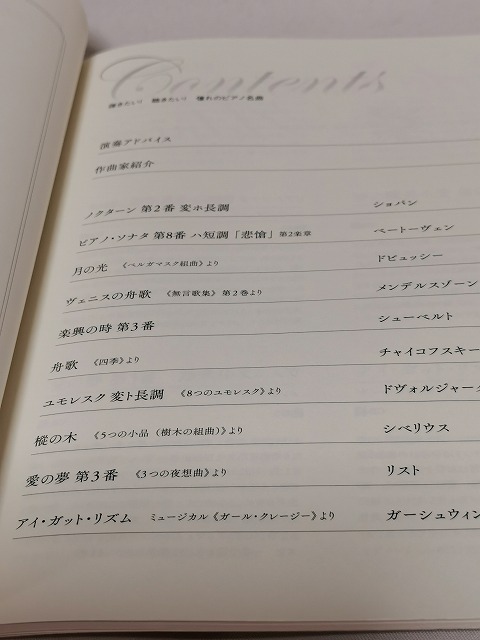 Contents
弾きたい! 聴きたい! 憧れのピアノ名曲
演奏アドバイス
作曲家紹介
ノクターン 第2番 変ホ長調 ショパン
ピアノ・ソナタ 第8番 ハ短調「悲愴」第2楽章 ベートーヴェン
月の光 《ベルガマスク組曲》より ドビュッシー
ヴェニスの舟歌 《無言歌集》第2巻より メンデルスゾーン
楽興の時 第3番 シューベルト
舟歌 《四季》より チャイコフスキー
ユモレスク 変ト長調 《8つのユモレスク》より ドヴォルジャーク
樅の木 《5つの小品(樹木の組曲)》より シベリウス
愛の夢 第3番 《3つの夜想曲》より リスト
アイ・ガット・リズム ミュージカル《ガール・クレージー》より ガーシュウィン